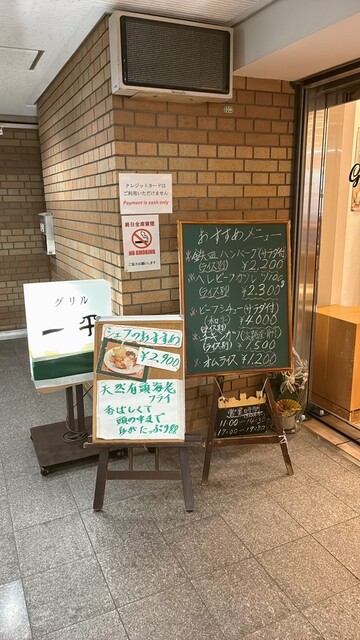 クレジットカードは
ご利用いただけません
Payment is cash only
終日全席禁煙
NO SMOKING
ご協力お願いします
グリル
一平
シェフのおすすめ
¥2,900
天然有頭海老
フライ
香ばしくて
頭の中まで
おすすめメニュー
※鉄皿ハンバーグ(サラダ付)
(ライス別) ¥2,200
※ヘレビーフカツ
(ライス別) ¥2,300
※ビーフシチュー(サラダ付)
(ライス別) ¥4,000
(ライス別) ¥1,500
※オムライス ¥1,200
営業時間
11:00-14:30
17:00-19:30
G